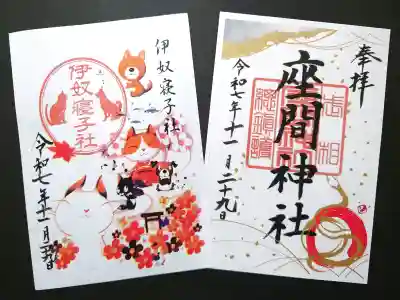 伊奴寝子社
伊奴寝子社
令和七年十一月二十九日
奉拝
座間神社
令和七年十一月二十九日